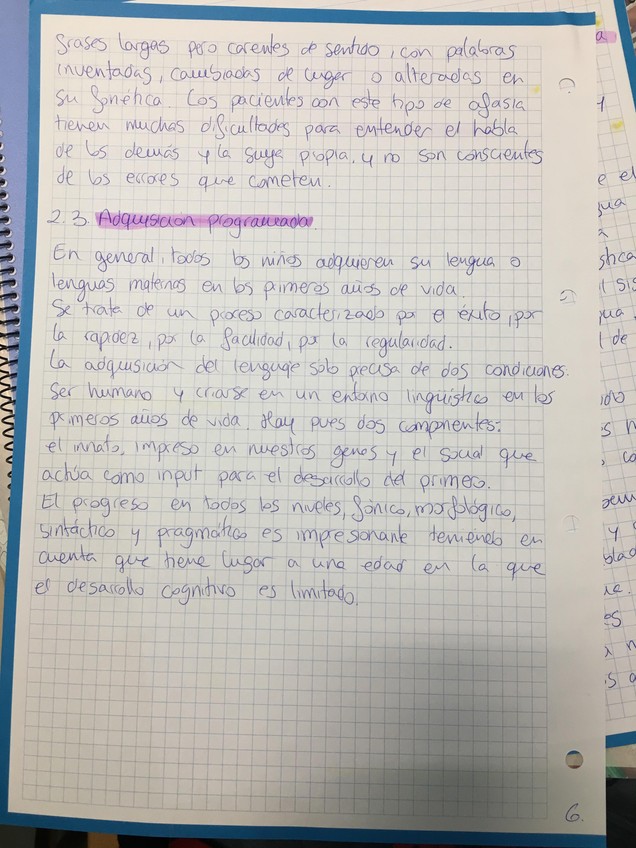 frases largas pero carentes de sentido, con palabras
inventadas, cambiadas de lugar o alteradas en
su fonética. Los pacientes con este tipo de afasia
tienen muchas dificultades para entender el habla
de los demás y la suya propia, y no son conscientes
de los errores que cometen.
2.3. Adquisición programada.
En general, todos los niños adquieren su lengua o
lenguas maternas en los primeros años de vida.
Se trata de un proceso caracterizado por el éxito, por
la rapidez, por la facilidad, por la regularidad.
La adquisición del lenguaje sólo precisa de dos condiciones:
Ser humano y criarse en un entorno lingüístico en los
primeros años de vida. Hay pues dos componentes:
el innato, impreso en nuestros genes y el social que
actúa como input para el desarrollo del primero.
El progreso en todos los niveles, fónico, morfológico,
sintáctico y pragmático es impresionante teniendo en
cuenta que tiene lugar a una edad en la que
el desarrollo cognitivo es limitado.
6.